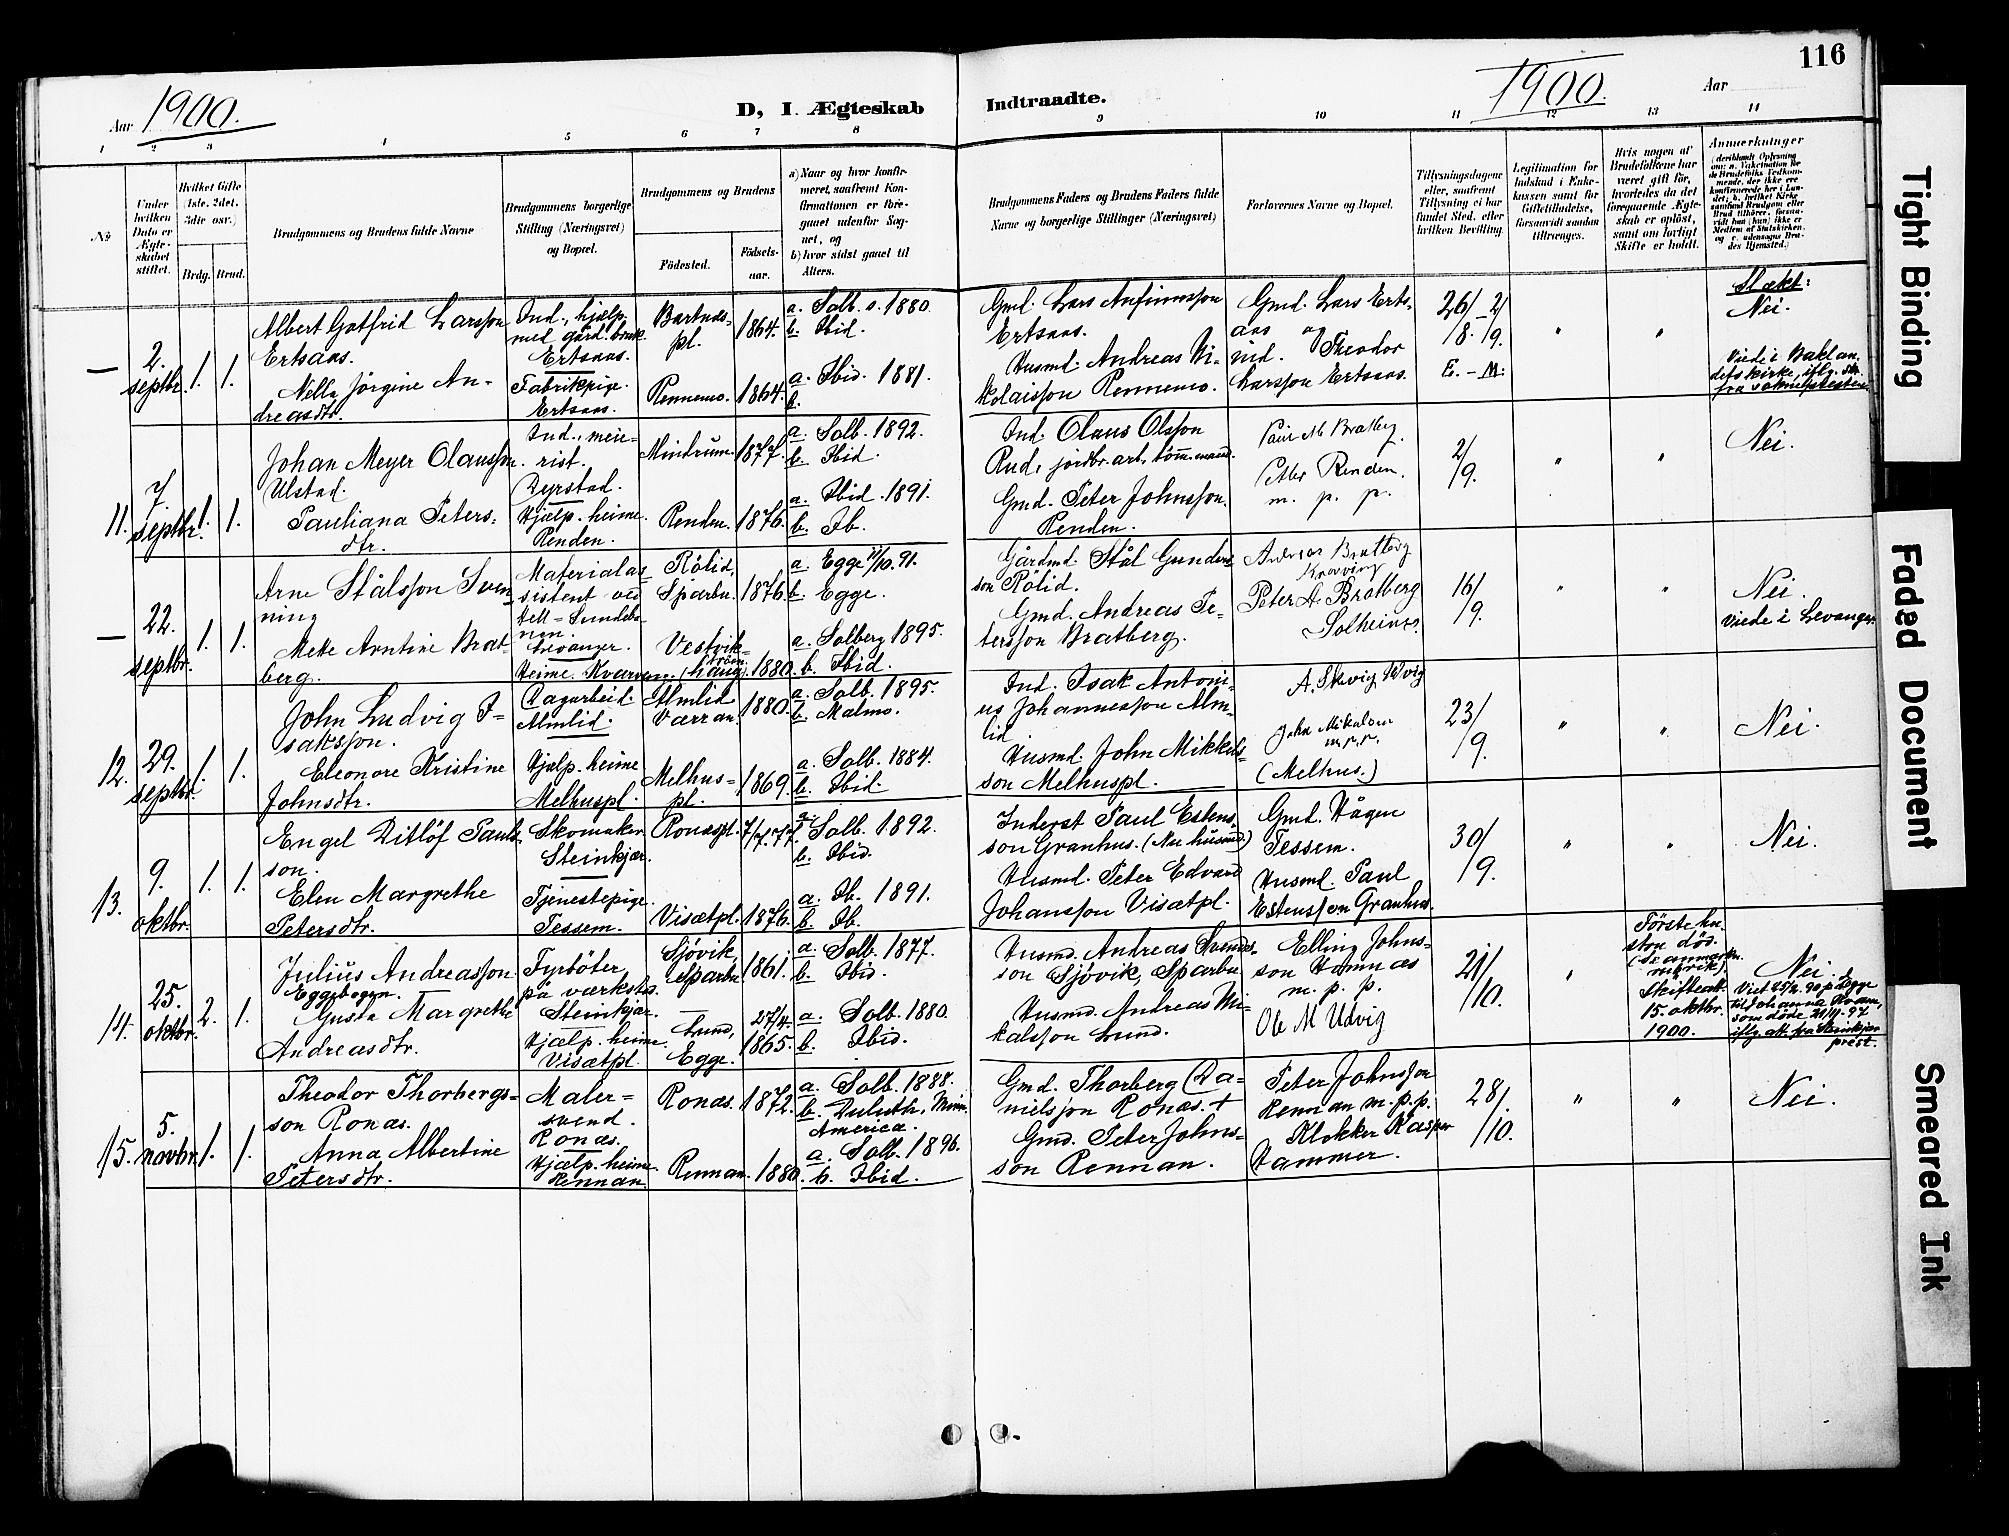 116
Aar 1900.
D, I. Ægteskab
Indtraadte.
1900.
Aar
1 2 3 4 5 6 7 8 9 10 11 12 13 14
No
Under hvilken Dato er Ægteskabet stiftet.
Hvilket Gifte (1ste. 2det. 3die osv.)
Brdg. Brud.
Brudgommens og Brudens fulde Navne
Brudgommens borgerlige Stilling (Næringsvei) og Bopæl.
Brudgommens og Brudens
Födested.
Födsels-aar.
a) Naar og hvor konfirmeret, saafremt Konfirmationen er foregaaet udenfor Sognet, og
b) hvor sidst gaaet til Alters.
Brudgommens Faders og Brudens Faders fulde Navne og borgerlige Stillinger (Næringsvei)
Forlovernes Navne og Bopæl.
Tillysningsdagene eller, saafremt Tillysning ei har fundet Sted, efter hvilken Bevilling.
Legitimation for Indskud i Enkekassen samt for Giftetilladelse, forsaavidt saadan tiltrænges.
Hvis nogen af Brudefolkene har været gift för, hvorledes da det foregaaende Ægteskab er oplöst, samt om lovligt Skifte er holdt.
Anmærkninger
Slækt:
—
2. septbr.
1. 1.
Albert Gotfrid Larsson
Ertsaas.
Nella Jörgine An-
dreasdtr.
Ind., hjælp.
med gård.bruk
Ertsaas.
Fabrikpige.
Ertsaas.
Bartnes-
pl. 1864.
Rennemo. 1864.
a. Solb. s. 1880.
b. Ibid.
a. Ibid. 1881.
b.
Gmd. Lars Anfinnsson
Ertsaas.
Husmd. Andreas Ni-
kolaisson Rennemo.
Gmd. Lars Erts-
aas og
ind. Theodor
Larsson Ertsaas.
26/8. – 2/9.
E. – M.
"
"
Nei.
Viede i Baklan-
dets kirke, iflg.
11.
7. septbr.
1. 1.
Johan Meyer Olausson
Ulstad.
Pauliana Peters-
dtr.
Ind., meie-
rist.
Dyrstad.
Hjælp. heime.
Renden.
Mindrum. 1877.
Renden. 1876.
a. Solb. 1892.
b. Ibid.
a. Ibid. 1891.
b. Ib.
Ind. Olaus Olsson
Rud, jordbr.arb, tömm.mand.
Gmd. Peter Johnsson
Renden.
M Bratberg.
Petter Renden.
m. p. p.
2/9.
"
"
Nei.
—
22. septbr.
1. 1.
Arne Stålsson Sven-
ning
Mette Arntine Brat-
berg.
Materialas-
sistent ved
Hell-Sundeba-
nen.
Levanger.
Heime. Kvarven
Rölid,
Sparbu. 1876.
Vestvik-
haug. 1880.
a. Egge 11/10. 91.
b. Egge.
a. Solberg 1895.
b. Ibid.
Gårdmd. Stål Gunders-
son Rölid.
Gmd. Andreas Pe-
tersson Bratberg.
Andreas Bratberg
Peter A. Bratberg
Solheim.
16/9.
"
"
Nei.
viede i Levanger.
12.
29. septbr.
1. 1.
John Ludvig I-
saksson.
Eleonore Kristine
Johnsdtr.
Dagarbeid.
Almlid.
Hjælp. heime
Melhuspl.
Almlid
Værran. 1880.
Melhus-
pl. 1869.
a. Solb. 1895.
b. Malmo.
a. Solb. 1884.
b. Ibid.
Ind. Isak Antoni-
us Johannesson Alm-
lid
Husmd. John Mikkels-
son Melhuspl.
John Mikalsen
m.p.p.
(Melhus.)
23/9.
"
"
Nei.
13.
9. oktbr.
1. 1.
Engel Ditlöf Pauls-
son.
Elen Margrethe
Petersdtr.
Skomaker
Steinkjær.
Tjenestepige.
Tessem.
Ronæspl. 7/7.77.
Visætpl. 1876.
a. Solb. 1892.
b. Ibid.
a. Ib. 1891.
b. Ib.
Inderst Paul Estens-
son Granhus. (Nu husmd.)
Husmd. Peter Edvard
Johansson Visætpl.
Gmd. Hågen
Tessem.
Husmd. Paul
Estensson Granhus.
30/9.
"
"
Nei.
14.
25. oktbr.
2. 1.
Julius Andreasson
Eggebogen.
Gusta Margrethe
Andreasdtr.
Fyrböter
på værksted.
Steinkjær.
Hjælp. heime.
Visætpl.
Sjövik,
Sparbu. 1861.
Lund,
Egge. 27/4. 1865.
a. Solb. 1877.
b. Ibid.
a. Solb. 1880.
b. Ibid.
Husmd. Andreas Svends-
son Sjövik, Sparbu
Husmd. Andreas Mi-
kalsson Lund.
Elling Johns-
son Homnæs
m. p. p.
Ole M Udvig
21/10.
"
Förste ku-
stru död.
(Se anmærkn.
rubrik).
Skifteatt.
15. oktbr.
1900.
Nei.
Viet 25/2. 90 på Egge
til Johanna Kvam,
som döde 21/11. 97
iflg. att. fra Steinkjær
prest.
15.
5. novbr.
1. 1.
Theodor Thorbergs-
son Ronæs.
Anna Albertine
Petersdtr.
Maler-
svend.
Ronæs.
Hjælp. heime
Rennan.
Ronæs. 1872.
Rennan. 1880.
a. Solb. 1888.
b. Duluth, Minn.
America.
a. Solb. 1896.
b. Ibid.
Gmd. Thorberg Da-
nielsson Ronæs. +
Gmd. Peter Johns-
son Rennan.
Peter Johnsson
Rennan m.p.p.
Klokker Kasper
Hammer.
28/10.
"
"
Nei.
Tight Binding
Faded Document
Smeared Ink